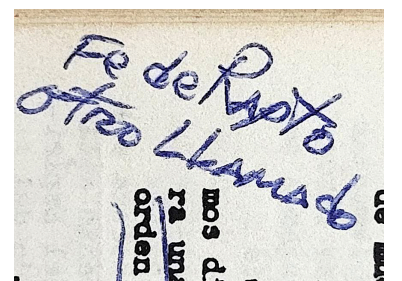 Fe de Rapto
otro Llamado
orden
ra una
mos di